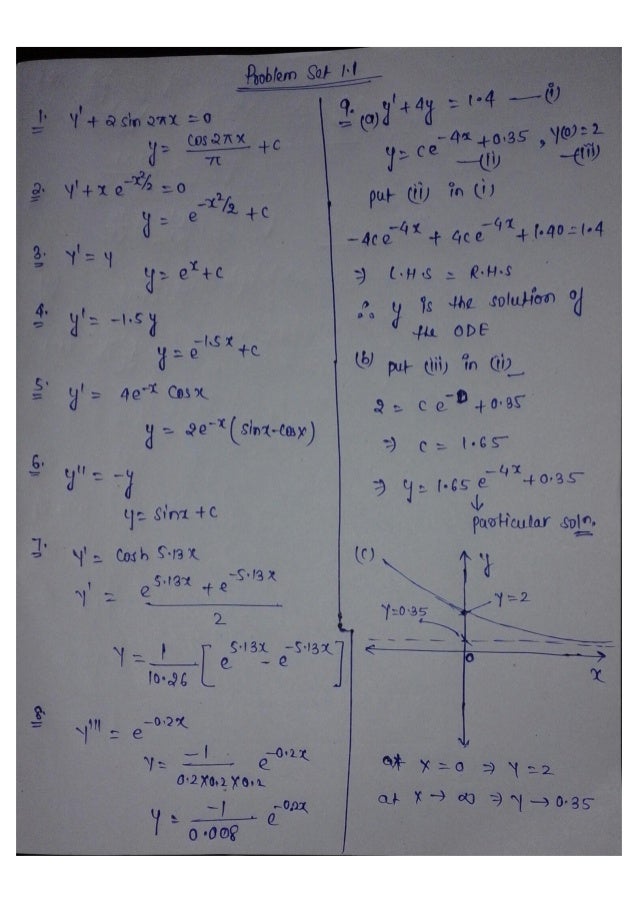 Problem Set 1.1
1. y' + 2 sin 2πx = 0
y = cos 2πx / π + c
2. y' + x e^{-x²/2} = 0
y = e^{-x²/2} + c
3. y' = y
y = e^x + c
4. y' = -1.5y
y = e^{-1.5x} + c
5. y' = 4e^{-x} cos x
y = 2e^{-x} (sinx - cosx)
6. y'' = -y
y = sinx + c
7. y' = cosh 5.13x
y' = e^{5.13x} + e^{-5.13x} / 2
y = 1/10.26 [e^{5.13x} - e^{-5.13x}]
8. y''' = e^{-0.2x}
y = -1 / 0.2x0.2x0.2 e^{-0.2x}
y = -1 / 0.008 e^{-0.2x}
9. (a) y' + 4y = 1.4 — (i)
y = ce^{-4x} + 0.35, y(0) = 2
—(ii) —(iii)
put (ii) in (i)
-4ce^{-4x} + 4ce^{-4x} + 1.40 = 1.4
⇒ L.H.S = R.H.S
∴ y is the solution of
the ODE
(b) put (iii) in (ii)
2 = ce^{-0} + 0.35
⇒ c = 1.65
⇒ y = 1.65 e^{-4x} + 0.35
↓
particular soln.
(c)
y
y=2
y=0.35
0
x
at x = 0 ⇒ y = 2
at x → ∞ ⇒ y → 0.35